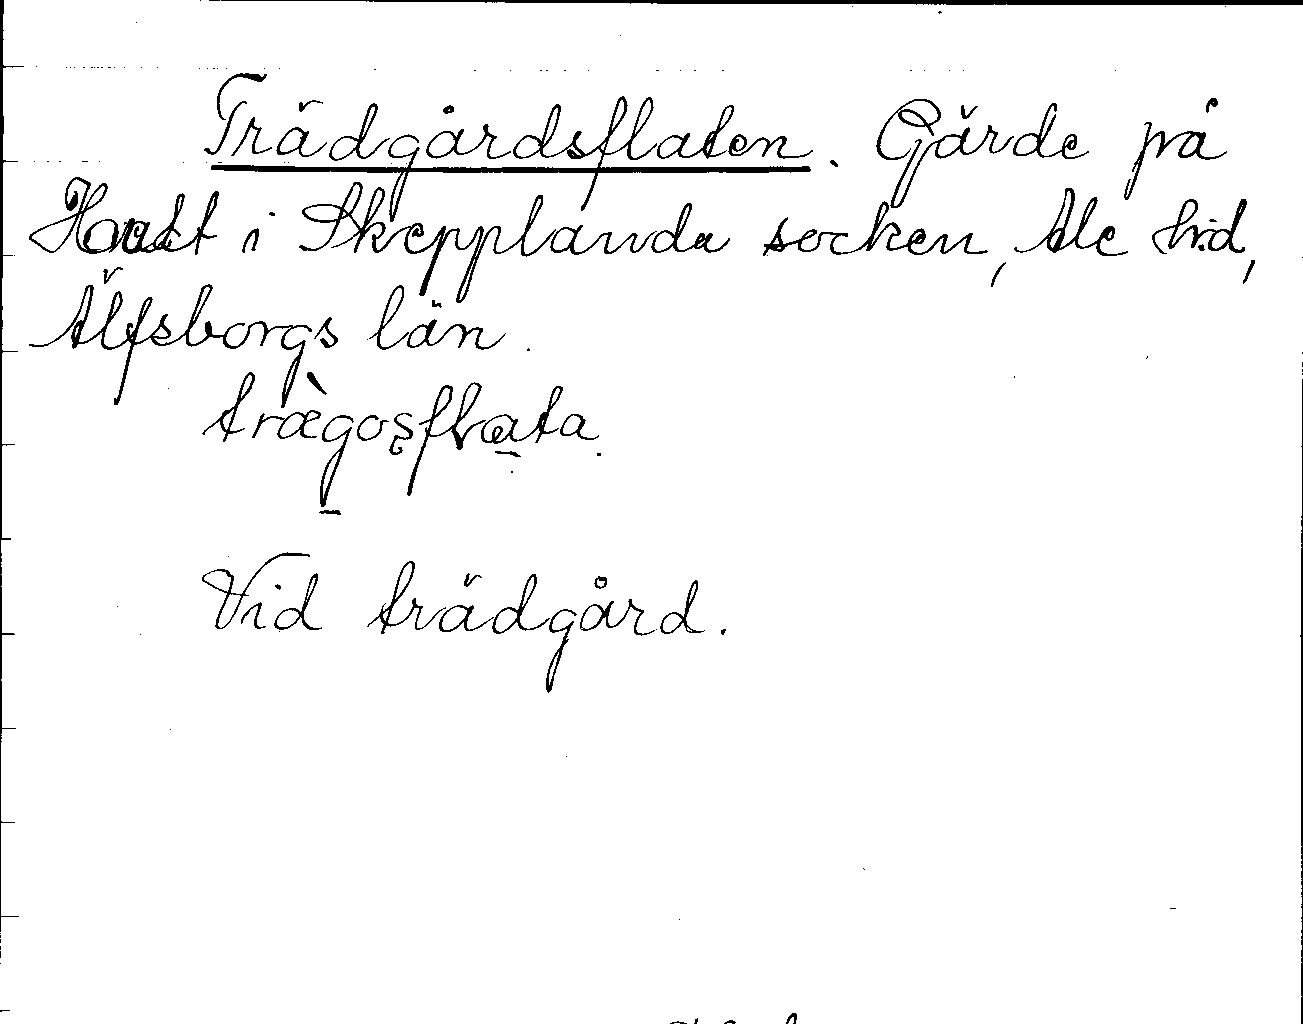 Trädgårdsflaten. Gärde på
i Skepplanda socken, Ale hd,
Älfsborgs län.
trægosflata.
Vid trädgård.